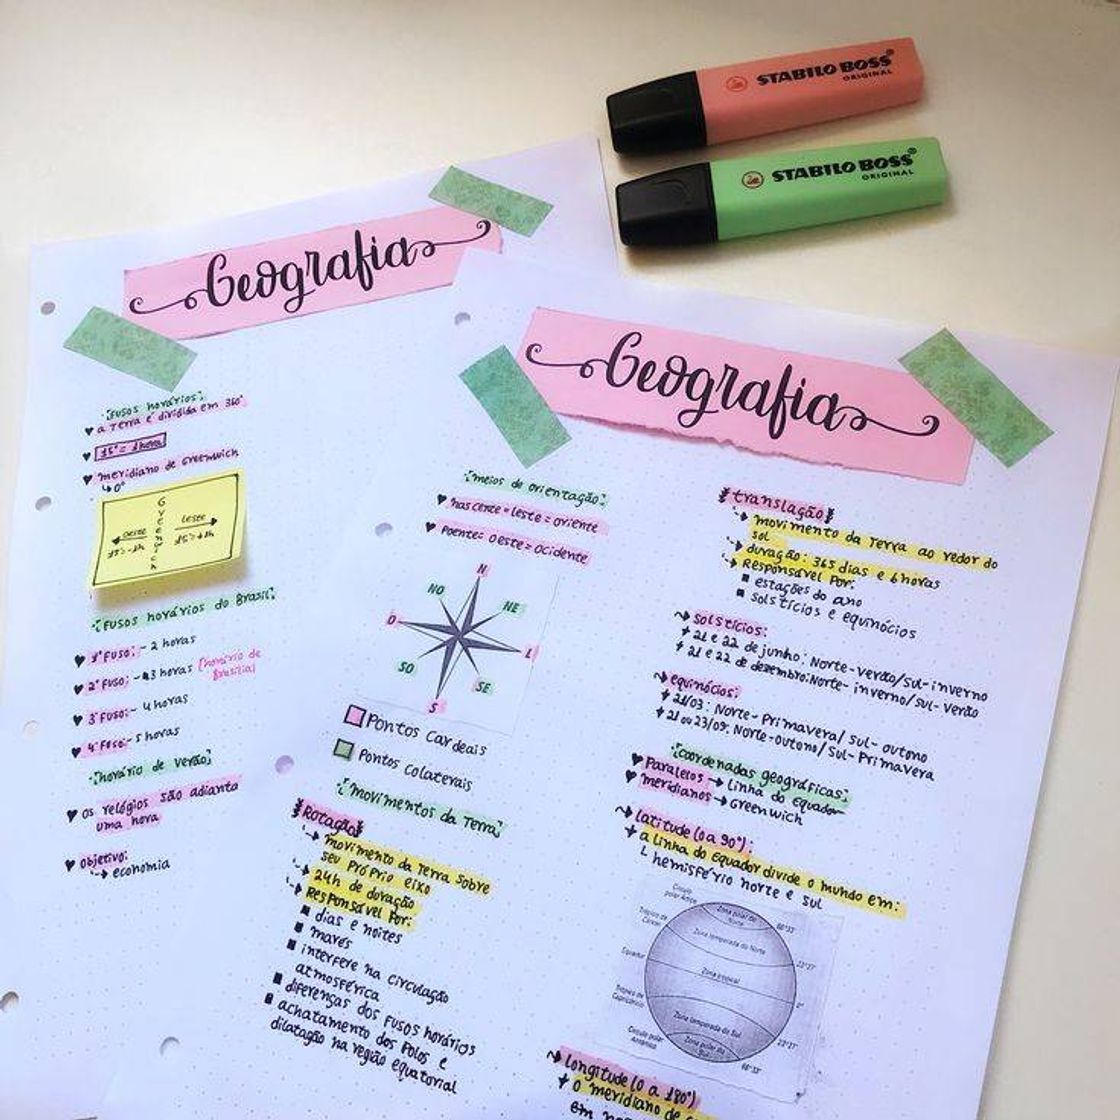 STABILO BOSS
ORIGINAL
STABILO BOSS
ORIGINAL
Geografia
Fusos horários:
♥ a Terra é dividida em 360°
♥ 15° = 1 hora
♥ meridiano de Greenwich
↳ 0°
Greenwich
oeste
leste
15° = -1h
15° = +1h
Fusos horários do Brasil:
♥ 1° Fuso: - 2 horas
♥ 2° Fuso: - 3 horas [horário de
Brasília]
♥ 3° Fuso: - 4 horas
♥ 4° Fuso: - 5 horas
horário de verão:
♥ os relógios são adianta
uma hora
♥ objetivo:
↳ economia
Geografia
meios de orientação:
♥ nascente = leste = oriente
♥ Poente = oeste = ocidente
N
NO
NE
O
L
SO
SE
S
Pontos cardeais
Pontos colaterais
movimentos da Terra:
Rotação
↳ movimento da Terra sobre
seu próprio eixo
↳ 24h de duração
↳ Responsável Por:
■ dias e noites
■ marés
■ interfere na circulação
atmosférica
■ diferenças dos fusos horários
■ achatamento dos Polos e
dilatação na região equatorial
translação
↳ movimento da Terra ao redor do
sol
↳ duração: 365 dias e 6 horas
↳ Responsável Por:
■ estações do ano
■ solstícios e equinócios
solstícios:
+ 21 e 22 de junho: Norte-verão/sul-inverno
+ 21 e 22 de dezembro: Norte-inverno/sul-verão
equinócios:
+ 21/03: Norte-Primavera/sul-outono
+ 21 ou 23/09: Norte-outono/sul-Primavera
coordenadas geográficas:
♥ Paralelos → linha do equador
♥ meridianos → Greenwich
latitude (0 a 90°):
+ a linha do Equador divide o mundo em:
↳ hemisfério norte e sul
Círculo
polar Ártico
Zona polar do
Norte
66°33'
Trópico de
Câncer
Zona temperada do Norte
23°27'
Equador
Zona tropical
0°
Trópico de
Capricórnio
Zona temperada do Sul
23°27'
Círculo polar
Antártico
Zona polar do
Sul
66°33'
longitude (0 a 180°)
+ o meridiano de
em